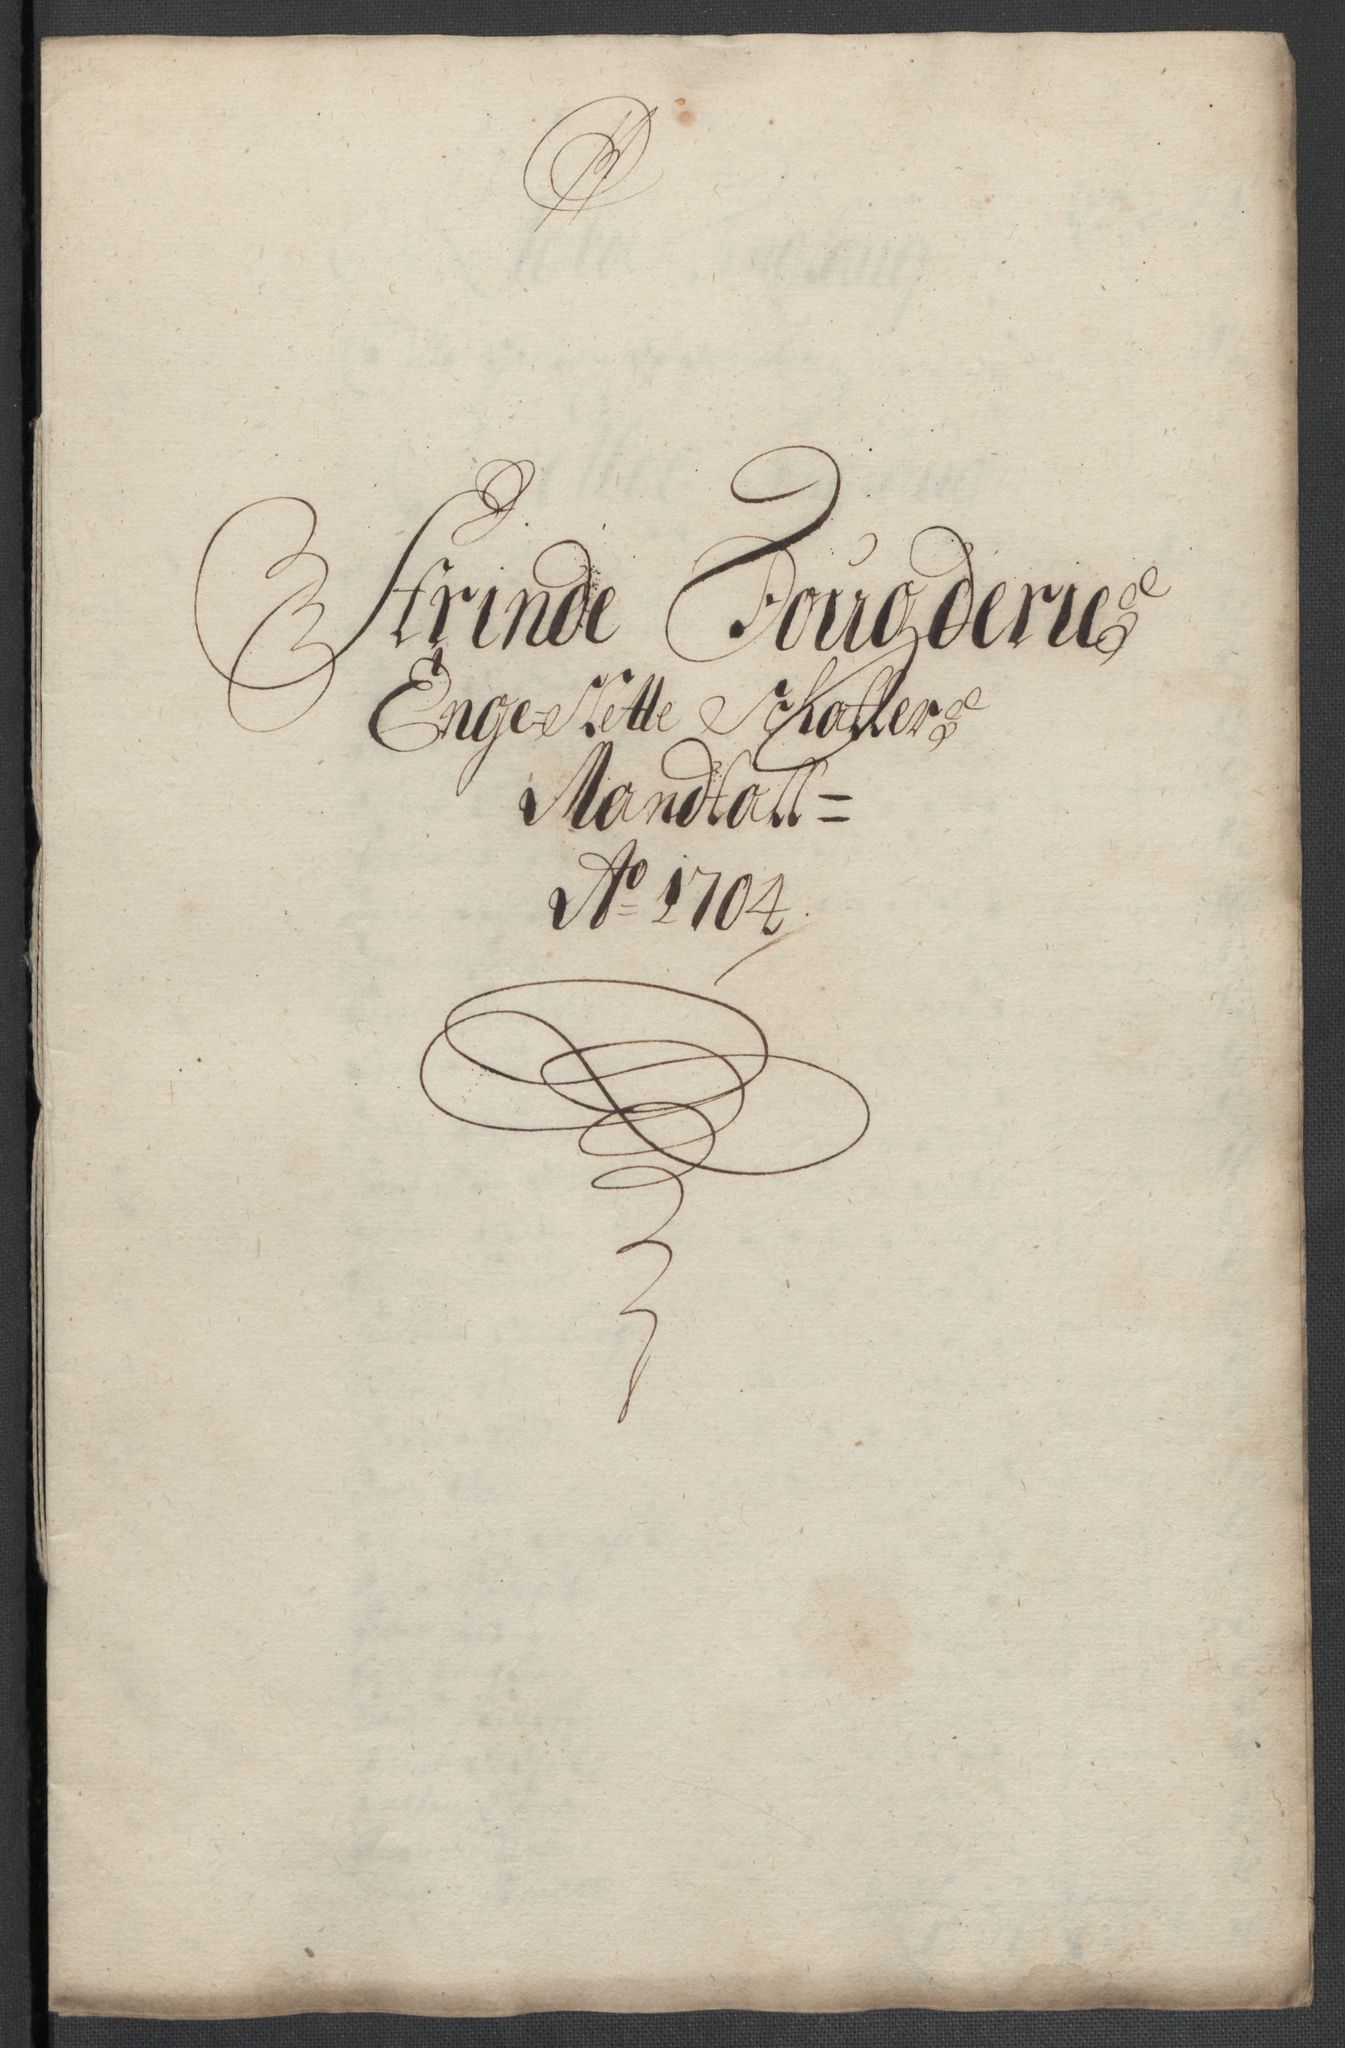 Strinde Fougderies
Enge-Slette Schatters
Mandtall=
Ao 1704